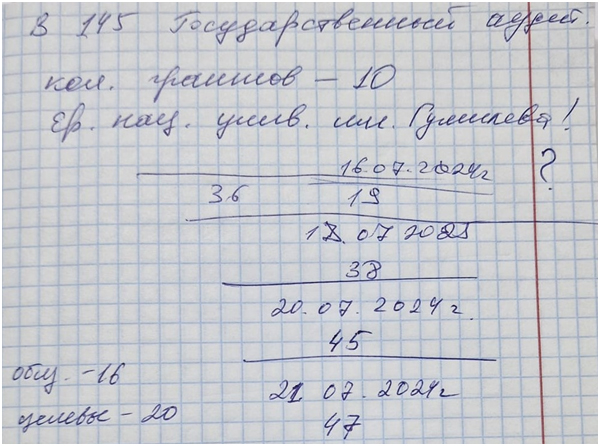 В 145 Государственный аудит.
кол. грантов – 10
Евр. нац. унив. им. Гумилева!
16.07.2024г ?
36 19
18.07 2023
38
20.07.2024г.
45
общ. – 16
21 07.2024г
целевые – 20
47